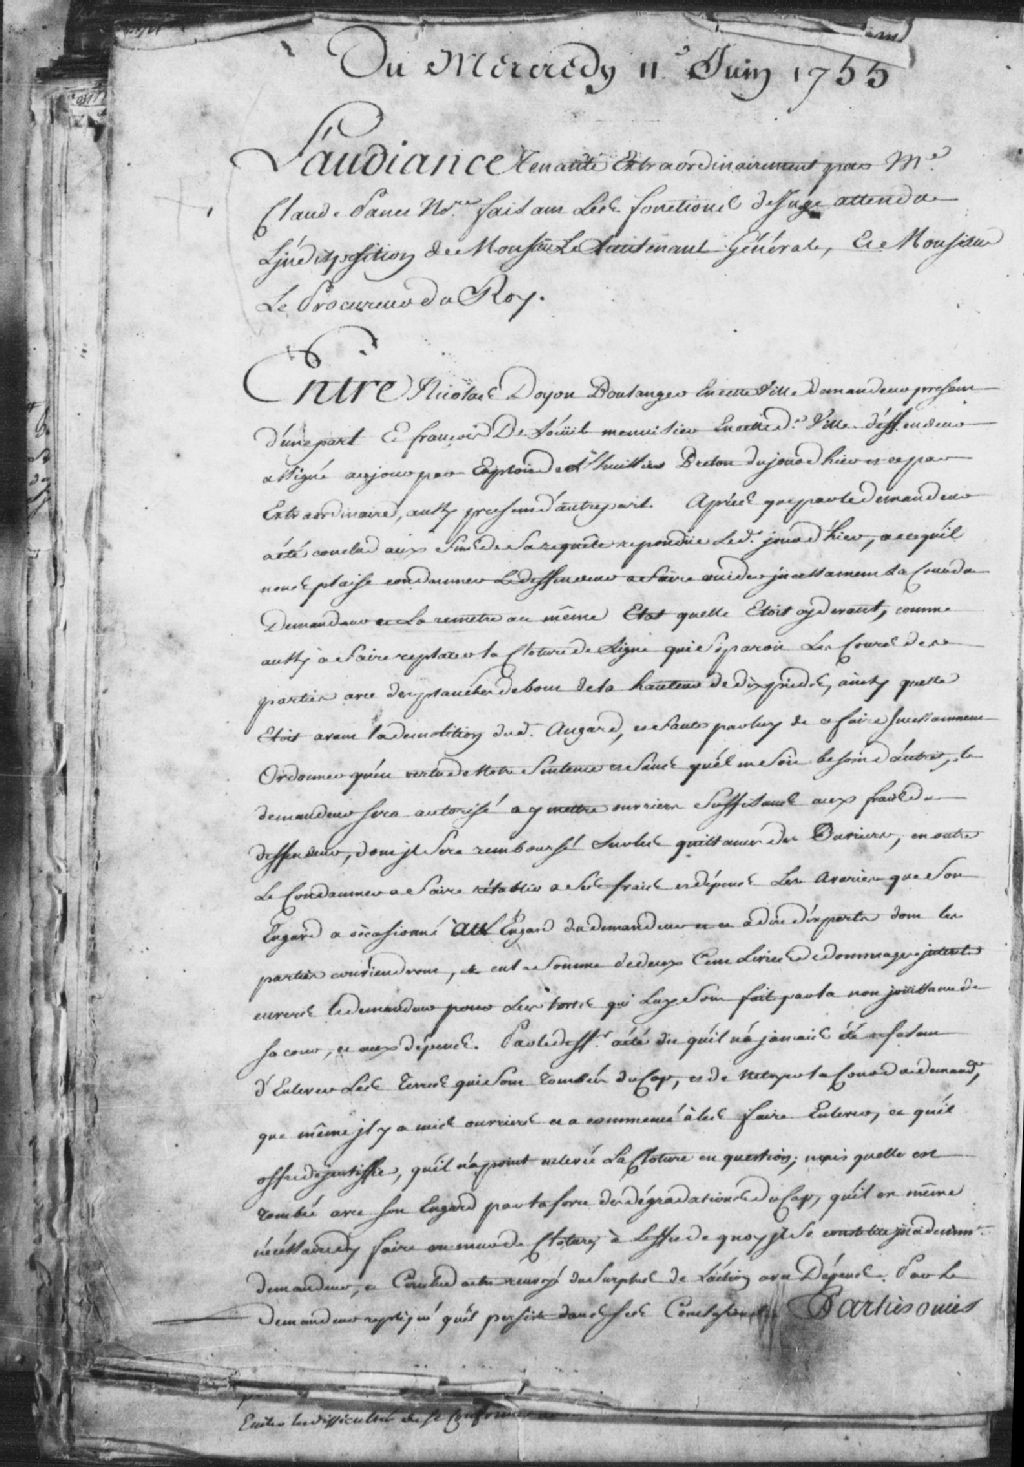 Du Mercredy 11e Juin 1755
L'audiance tenante Extraordinairement par Me
Claude Panet Nre. faisant Les fonctions de Juge attendu
L'jndisposition de Monsieur Le Lieutenant Générale, Et Monsieur
Le Procureur du Roy.
Entre Nicolas Doyon Boulanger En cette Ville demandeur present
d'une part Et françois De menuisier En cette de. Ville deffendeur
assigné au jour par Exploit de L'huissier Breton du jour d'hier et ce par
Extraordinaire, aussy present d'autre part. Après que par le demandeur
a été conclud aux fins de sa requête repondüe Led. jour d'hier, a ce qu'il
nous plaise condamner Le deffendeur a faire vuider jncessamment La Cour du
Demandeur et La remettre au même Etat quelle Etoit cy devant, comme
aussy a faire replacer la Cloture de Ligne qui séparoit Les Cours des
parties avec des planches debout de la hauteur de dix pieds, ainsy quelle
Etoit avant la demolition dud. Angard, et faute par luy de ce faire jncessamment
Ordonner qu'en vertu de Notre Sentence et sans qu'il en soit besoin d'autre, le
demandeur sera autorisé a y mettre ouvriers suffisants aux frais du
deffendeur, dont jl sera remboursé sur les quittances des Ouvriers, en outre
Le Condamner a faire rétablir a ses frais et dépens Les avaries que son
Engard a occasionné aux Engard du demandeur et ce a dire d'experts dont les
parties conviendront, et en la somme de deux Cent Livres de dommages jnterets
envers le demandeur pour Les torts qui Luy sont fait par la non jouissance de
sa cour, et aux dépens. Par le deff. a été dit qu'il n'a jamais été refusant
d'Enlever Les Terres qui sont tombées du Cap, et de nétoyer la Cour du demandr,
que même jl y a mis ouvriers et a commencé à les faire Enlever, ce qu'il
offre de justiffier, qu'il n'a point enlevé La Cloture en question; mais quelle est
tombée avec son Engard par la force des dégradations du Cap, qu'il est même
nécéssaire d'y faire un mur de Cloture, à L'effet de quoy jl se
demandeur, et Conclud a etre renvoyé du surplus de L'action avec Dépens. Par Le
demandeur repliqué qu'il persiste dans ses Conclusions Parties ouies
Eviter les difficultés de se Conformer